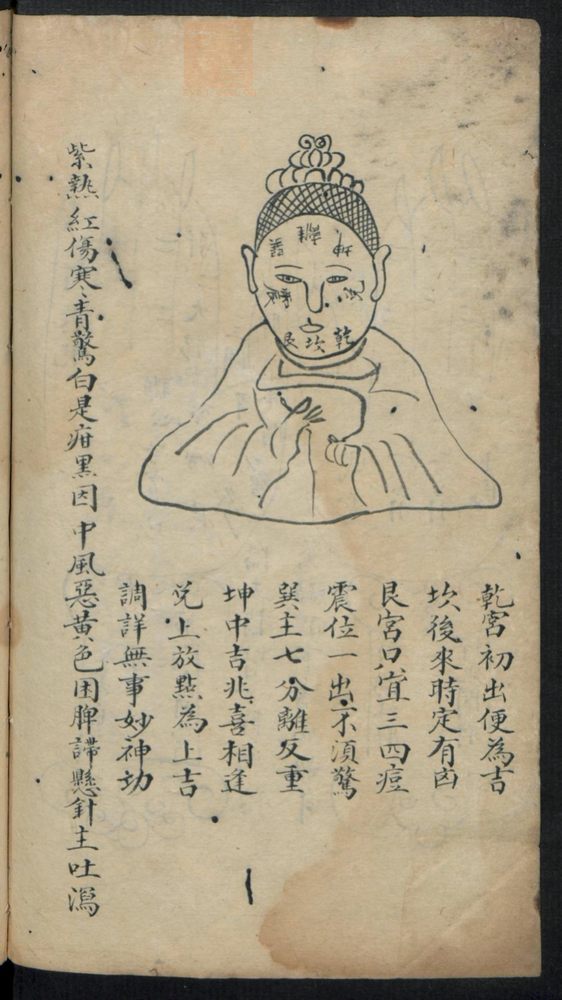 坤離巽
兌震
乾坎艮
乾宮初出便為吉
坎後來時定有凶
艮宮只宜三四痘
震位一出不須驚
巽主七分離反重
坤中吉兆喜相逢
兌上放點為上吉
調詳無事妙神功
紫熱紅傷寒青驚白是疳黑因中風惡黃色困脾諦懸針主吐瀉